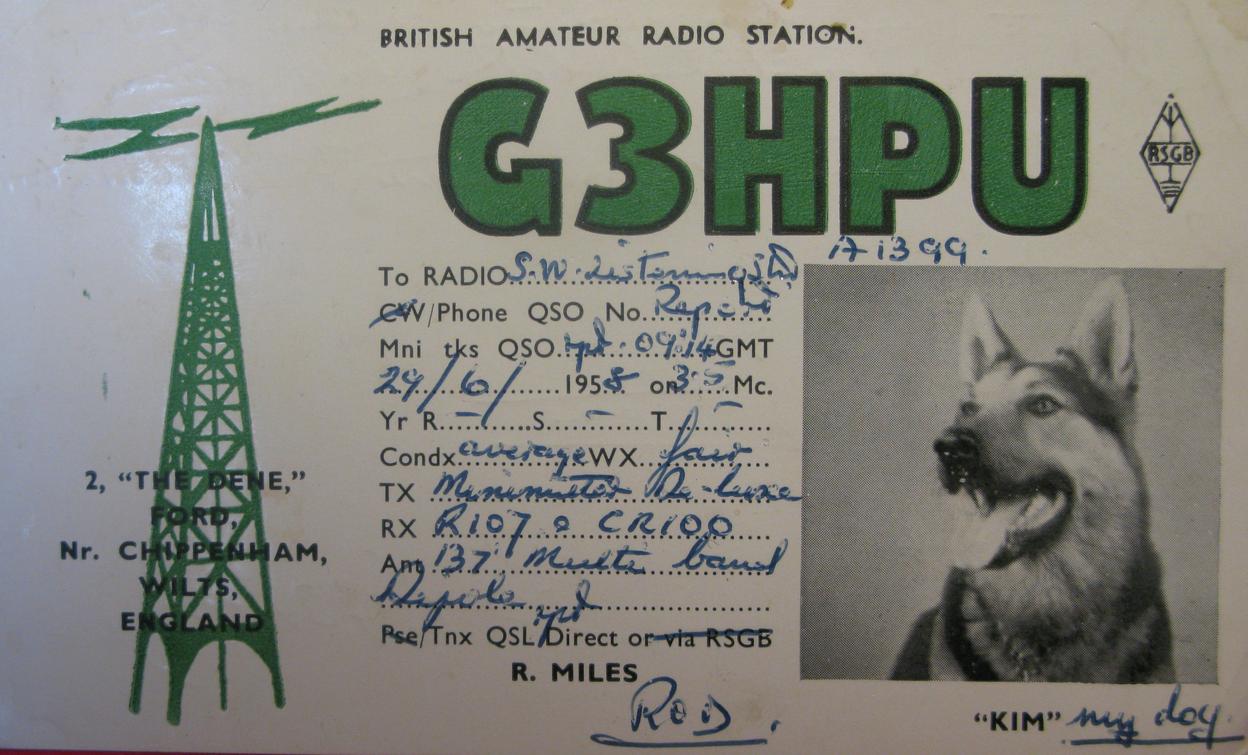 BRITISH AMATEUR RADIO STATION.
G3HPU
RSGB
To RADIO S.W. Listening Stn A1399.
CW/Phone QSO No. Report
Mni tks QSO. rpt. 0914 GMT
29/6/ 1958 on 3.5 Mc.
Yr R – S – T –
Condx average WX fair
TX Minimitter De-luxe
RX R107 & CR100
Ant 137' Multi band
Dipole
Pse/Tnx QSL rpt Direct or via RSGB
R. MILES
ROD.
2, "THE DENE,"
FORD,
Nr. CHIPPENHAM,
WILTS,
ENGLAND
"KIM" my dog.